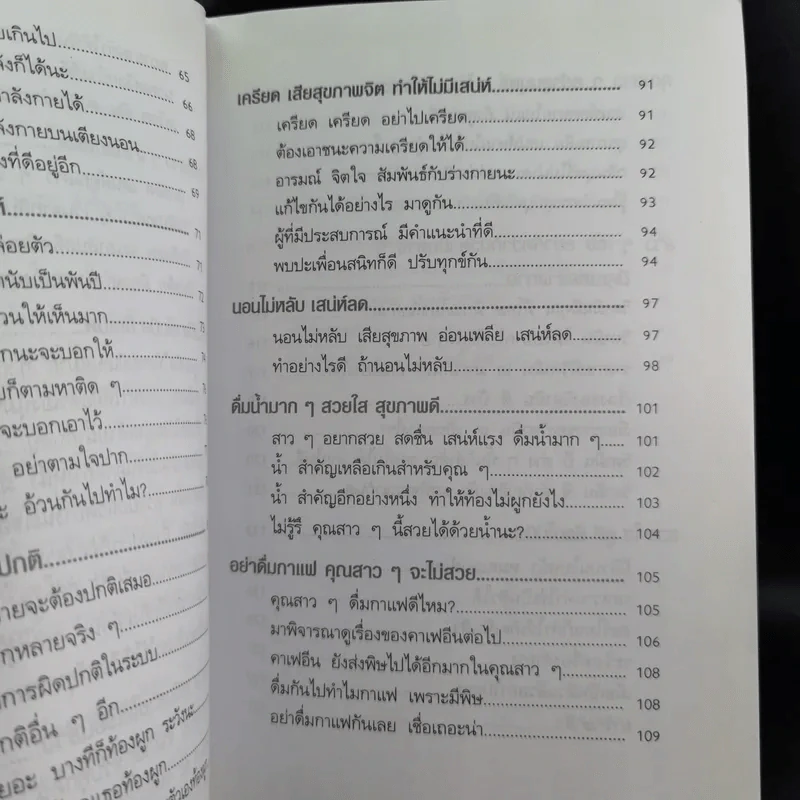 เกินไป 65
ก็ได้นะ 66
กำลังกายได้ 68
กำลังกายบนเตียงนอน 68
ที่ดีอยู่อีก 69
71
ปล่อยตัว 71
นับเป็นพันปี 72
อ้วนให้เห็นมาก 73
นะจะบอกให้
ก็ตามหาติด ๆ
จะบอกเอาไว้
อย่าตามใจปาก
อ้วนกันไปทำไม?
ปกติ
จะต้องปกติเสมอ
หลายจริง ๆ
การผิดปกติในระบบ
อื่น ๆ อีก
บางทีก็ท้องผูก ระวังนะ
ท้องผูก
เครียด เสียสุขภาพจิต ทำให้ไม่มีเสน่ห์ 91
เครียด เครียด อย่าไปเครียด 91
ต้องเอาชนะความเครียดให้ได้ 92
อารมณ์ จิตใจ สัมพันธ์กับร่างกายนะ 92
แก้ไขกันได้อย่างไร มาดูกัน 93
ผู้ที่มีประสบการณ์ มีคำแนะนำที่ดี 94
พบปะเพื่อนสนิทก็ดี ปรับทุกข์กัน 94
นอนไม่หลับ เสน่ห์ลด 97
นอนไม่หลับ เสียสุขภาพ อ่อนเพลีย เสน่ห์ลด 97
ทำอย่างไรดี ถ้านอนไม่หลับ 98
ดื่มน้ำมาก ๆ สวยใส สุขภาพดี 101
สาว ๆ อยากสวย สดชื่น เสน่ห์แรง ดื่มน้ำมาก ๆ 101
น้ำ สำคัญเหลือเกินสำหรับคุณ ๆ 102
น้ำ สำคัญอีกอย่างหนึ่ง ทำให้ท้องไม่ผูกยังไง 103
ไม่รู้รึ คุณสาว ๆ นี้สวยได้ด้วยน้ำนะ? 104
อย่าดื่มกาแฟ คุณสาว ๆ จะไม่สวย 105
คุณสาว ๆ ดื่มกาแฟดีไหม? 105
มาพิจารณาดูเรื่องของคาเฟอีนต่อไป 106
คาเฟอีน ยังส่งพิษไปได้อีกมากในคุณสาว ๆ 108
ดื่มกันไปทำไมกาแฟ เพราะมีพิษ 108
อย่าดื่มกาแฟกันเลย เชื่อเถอะน่า 109